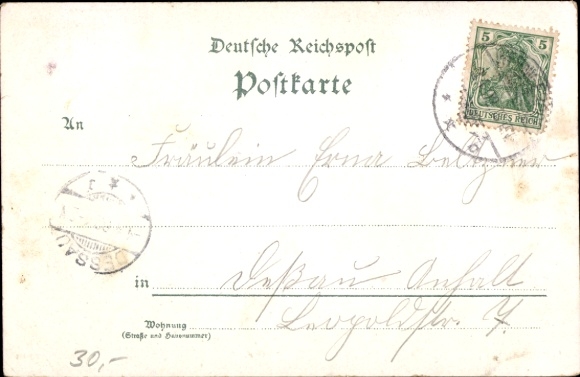 Deutsche Reichspost
Postkarte
5 5
DEUTSCHES REICH
An
Fräulein Erna
DESSAU
in Deßau Anhalt
Leopoldstr. 7
Wohnung
(Straße und Hausnummer)
30,-